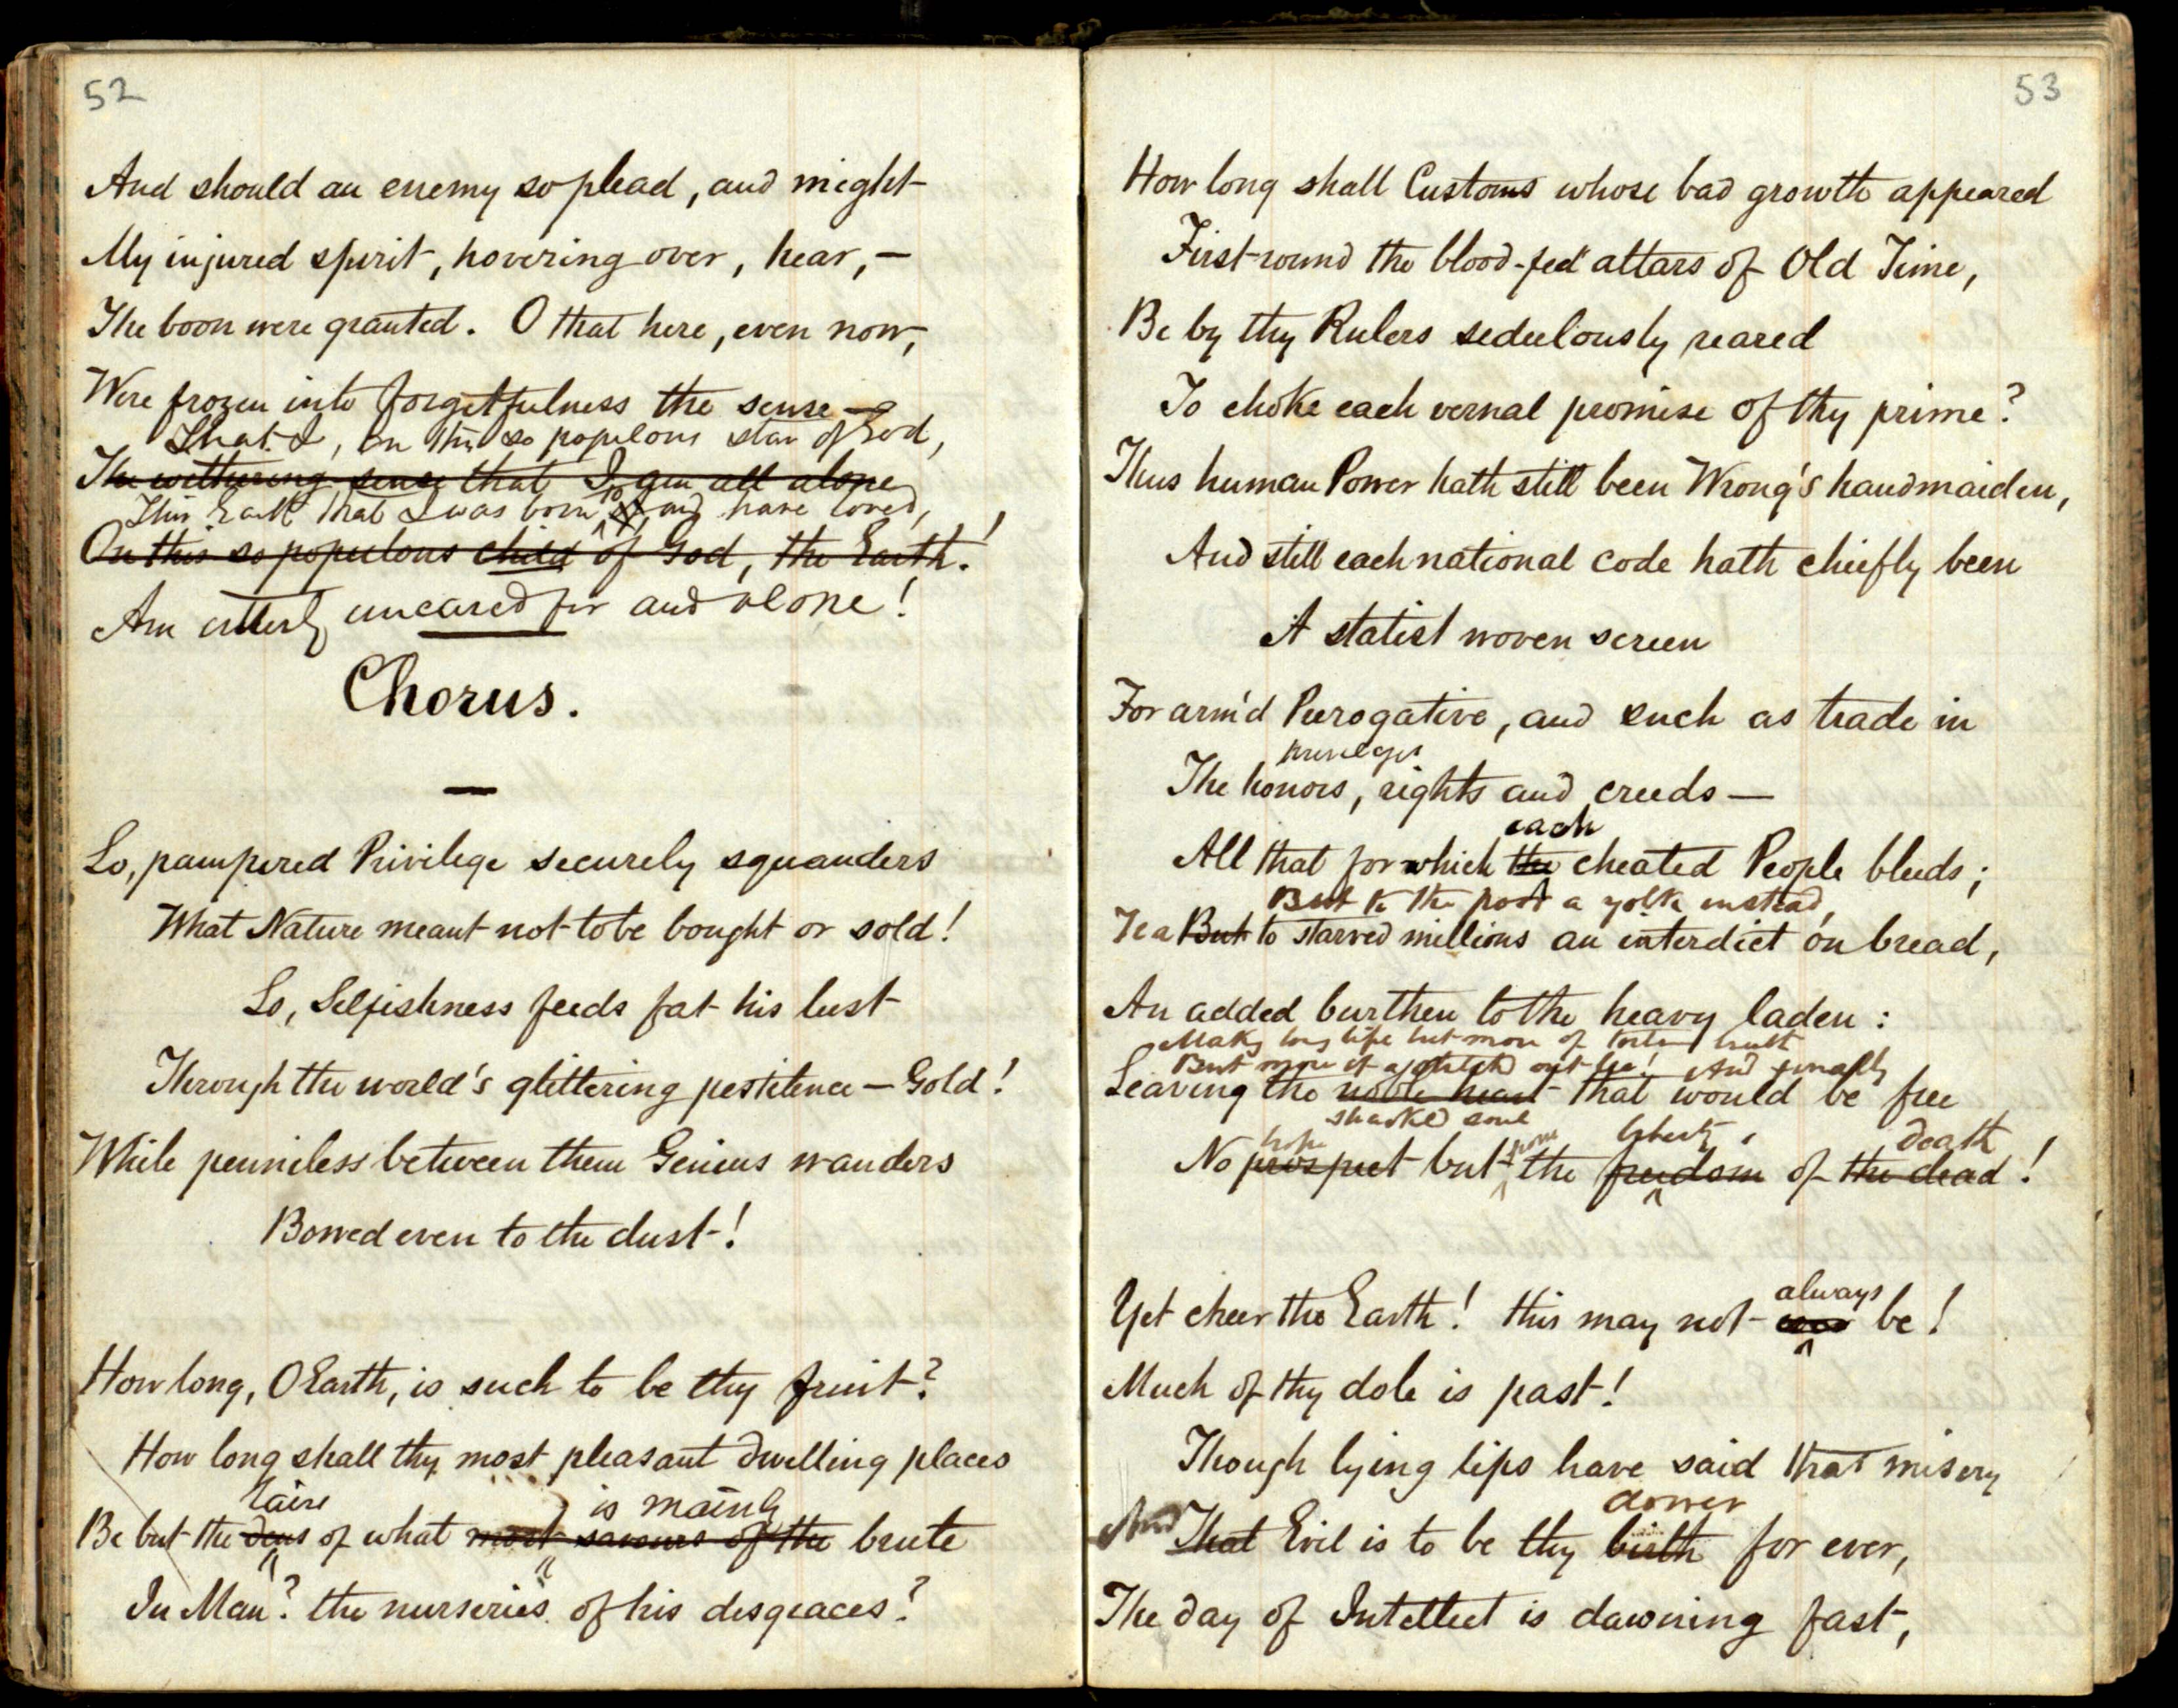 52
And should an enemy so plead, and might
My injured spirit, hovering over, hear, –
The boon were granted. O that here, even now,
Were frozen into forgetfulness the sense –
That I, on this so populous star of God,
The withering sense that I am all alone
This Earth that I was born to and have loved,
On this so populous child of God, the Earth.!
Am utterly uncared for and alone!
Chorus.
—
Lo, pampered Privilege securely squanders
What Nature meant not to be bought or sold!
Lo, Selfishness feeds fat his lust
Through the world's glittering pestilence – Gold!
While penniless between them Genius wanders
Bowed even to the dust!
How long, O Earth, is such to be thy fruit?
How long shall thy most pleasant dwelling places
lairs is mainly
Be but the dens of what most savours of the brute
In Man? the nurseries of his disgraces?
53
How long shall Customs whose bad growth appeared
First round the blood-fed altars of Old Time,
Be by thy Rulers sedulously reared
To choke each vernal promise of thy prime?
Thus human Power hath still been Wrong's handmaiden,
And still each national code hath chiefly been
A statist woven screen
For arm'd Prerogative, and such as trade in
privileges
The honors, rights and creeds —
each
All that for which the cheated People bleeds;
But to the poor a yolk instead,
Yea But to starved millions an interdict on bread,
An added burthen to the heavy laden:
Making long life but more of
But more of a stretched out And finally
Leaving the noble heart that would be free
shackled soul
hope from liberty death
No prospect but the freedom of the dead!
always
Yet cheer the Earth! this may not ever be!
Much of thy dole is past!
Though lying lips have said that misery
dower
And That Evil is to be thy birth for ever,
The day of Intellect is dawning fast,